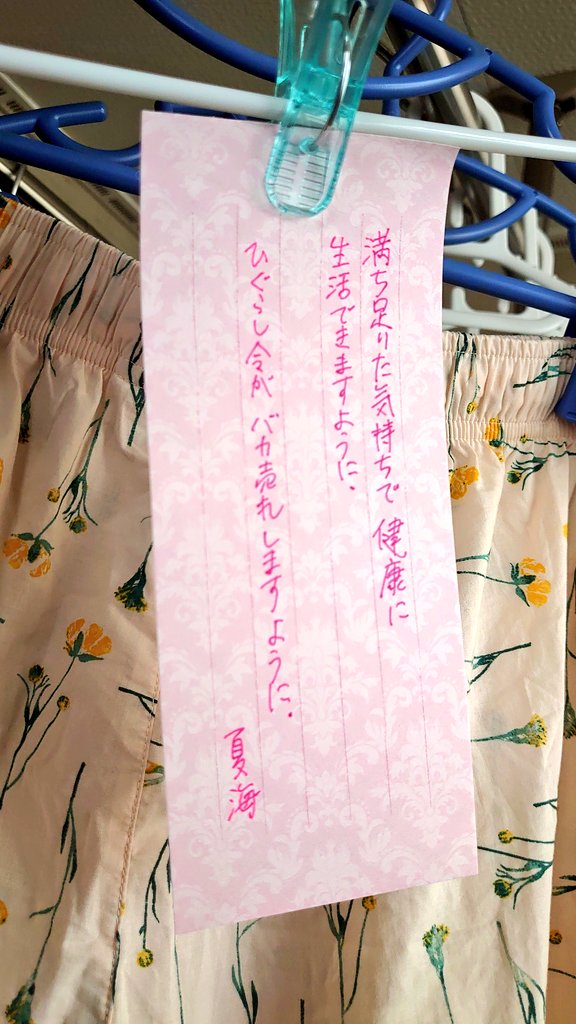 満ち足りた気持ちで健康に
生活できますように.
ひぐらし令が バカ売れしますように.
夏海